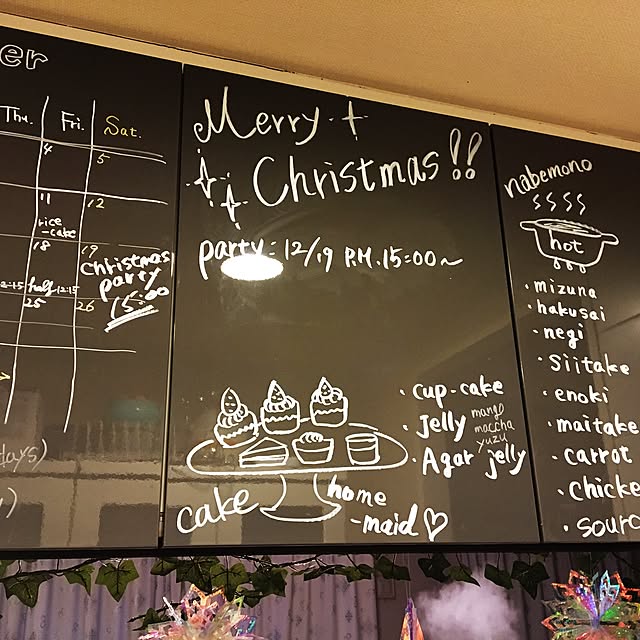 er
Thu. Fri. Sat.
4 5
11 12
rice
-cake
18 19
Christmas
party
15:00
half 12:15
25 26
days)
Merry
Christmas!!
party: 12/19 P.M. 15:00~
cup-cake
Jelly mango
maccha
yuzu
Agar jelly
cake home
-maid
nabemono
hot
mizuna
hakusai
negi
Siitake
enoki
maitake
carrot
Chicke
sourc